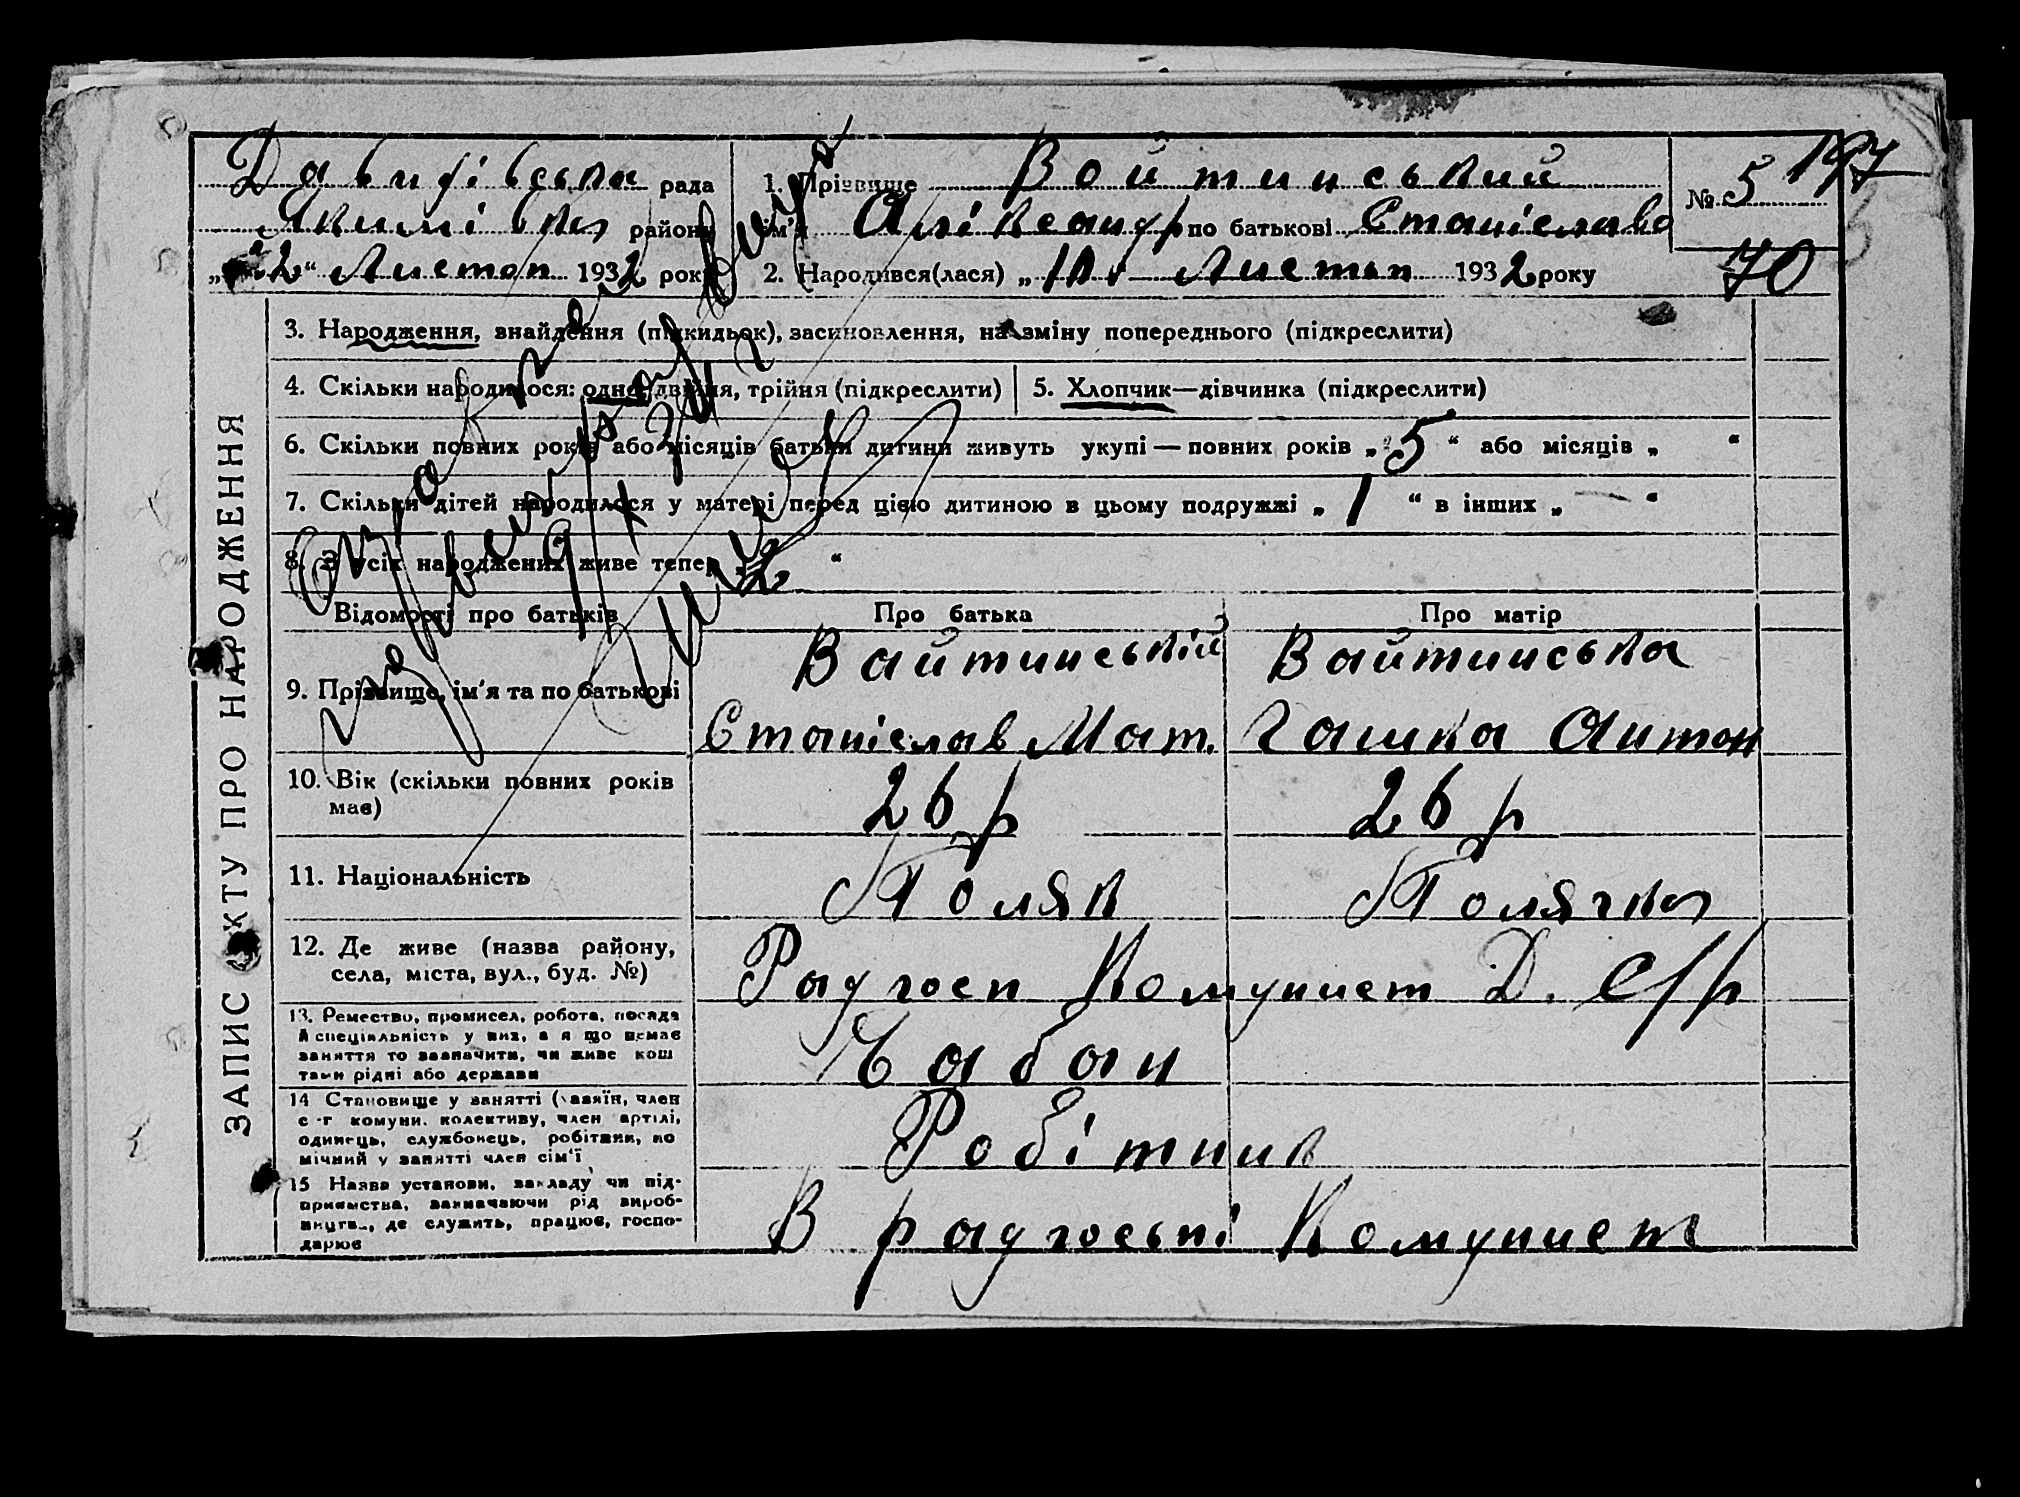 Давидівська рада
Якимівка району
"2" Листоп 1932 року
1. Прізвище Войтинський
ім'я Аліксандр по батькові Станіславо
2. Народився(лася) „10" Листоп 1932 року
№ 5
197
70
ЗАПИС АКТУ ПРО НАРОДЖЕННЯ
3. Народження, знайдення (підкидьок), засиновлення, на зміну попереднього (підкреслити)
4. Скільки народилося: одно, двійня, трійня (підкреслити)
5. Хлопчик—дівчинка (підкреслити)
6. Скільки повних років або місяців батьки дитини живуть укупі — повних років „5" або місяців „ "
7. Скільки дітей народилося у матері перед цією дитиною в цьому подружжі „1" в інших „—"
8. З усіх народжених живе тепер „2"
Відомості про батьків Про батька Про матір
9. Прізвище, ім'я та по батькові
Вайтинській
Станіслав Мат.
Вайтинська
Гашка Антон
10. Вік (скільки повних років
має)
26 р
26 р
11. Національність
Поляк
Полячка
12. Де живе (назва району,
села, міста, вул., буд. №)
Радгосп Комунист Д. С/р
13. Ремество, промисел, робота, посада
й спеціяльність у них, а я що немає
заняття то зазначити, чи живе кош
тами рідні або держави
Чабан
14 Становище у занятті (хазяїн, член
с-г комуни, колективу, член артілі,
одинець, службовець, робітник, по
мічний у занятті член сім'ї
Робітник
15 Назва установи, закладу чи під-
приємства, зазначаючи рід вироб-
ництва, де служить, працює, госпо-
дарює
В радгоспі Комунист